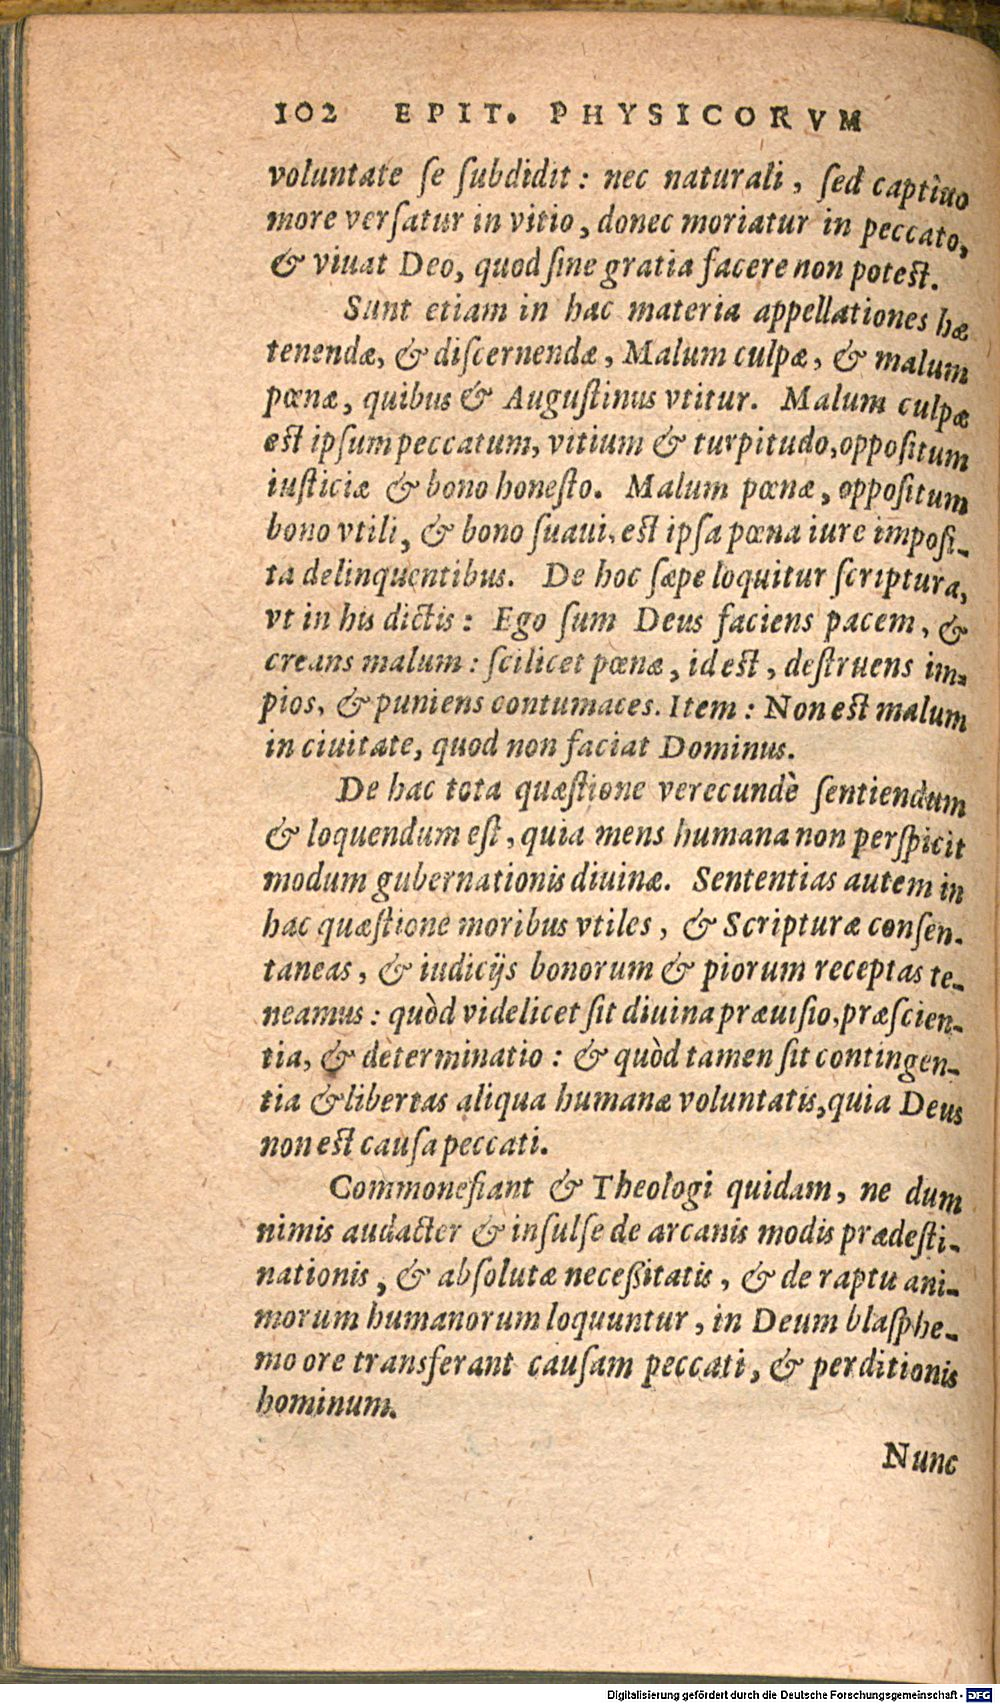 102 EPIT. PHYSICORVM
voluntate ſe ſubdidit: nec naturali, ſed captiuo
more verſatur in vitio, donec moriatur in peccato,
& viuat Deo, quod ſine gratia facere non poteſt.
Sunt etiam in hac materia appellationes hæ
tenendæ, & diſcernendæ, Malum culpæ, & malum
pœnæ, quibus & Auguſtinus vtitur. Malum culpæ
eſt ipſum peccatum, vitium & turpitudo, oppoſitum
iuſticiæ & bono honeſto. Malum pœnæ, oppoſitum
bono vtili, & bono ſuaui, eſt ipſa pœna iure impoſi-
ta delinquentibus. De hoc ſæpe loquitur ſcriptura,
vt in his dictis: Ego ſum Deus faciens pacem, &
creans malum: ſcilicet pœnæ, id eſt, deſtruens im-
pios, & puniens contumaces. Item: Non eſt malum
in ciuitate, quod non faciat Dominus.
De hac tota quæſtione verecundè ſentiendum
& loquendum eſt, quia mens humana non perſpicit
modum gubernationis diuinæ. Sententias autem in
hac quæſtione moribus vtiles, & Scripturæ conſen-
taneas, & iudicijs bonorum & piorum receptas te-
neamus: quòd videlicet ſit diuina præuiſio, præſcien-
tia, & determinatio: & quòd tamen ſit contingen-
tia & libertas aliqua humanæ voluntatis, quia Deus
non eſt cauſa peccati.
Commonefiant & Theologi quidam, ne dum
nimis audacter & inſulſe de arcanis modis prædeſti-
nationis, & abſolutæ neceſſitatis, & de raptu ani-
morum humanorum loquuntur, in Deum blaſphe-
mo ore transferant cauſam peccati, & perditionis
hominum.
Nunc
Digitalisierung gefördert durch die Deutsche Forschungsgemeinschaft - DFG